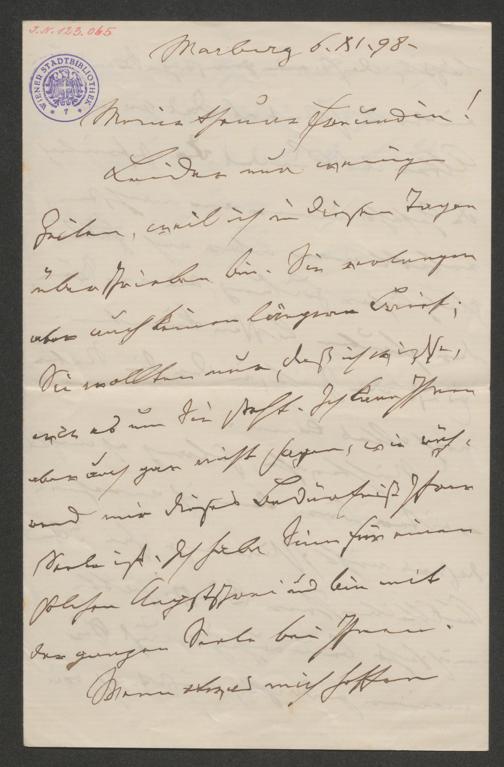 J.N. 123.065
WIENER STADTBIBLIOTHEK
Marburg 6. XI. 98.
Meine theure Freundin!
Leider nur wenige
Zeilen, weil ich in diesen Tagen
übertrieben bin. Sie verlangen
aber auch keinen längeren Brief;
Sie wollten nur, daß ich wisse,
wie es um Sie steht. Ich kann Ihnen
aber auch gar nicht sagen, wie
mir dieses Bedürfniß Ihrer
Seele ist. Ich habe Sinn für einen
solchen Angstschrei und bin mit
der ganzen Seele bei Ihnen.
Wenn etwas mich hoffen